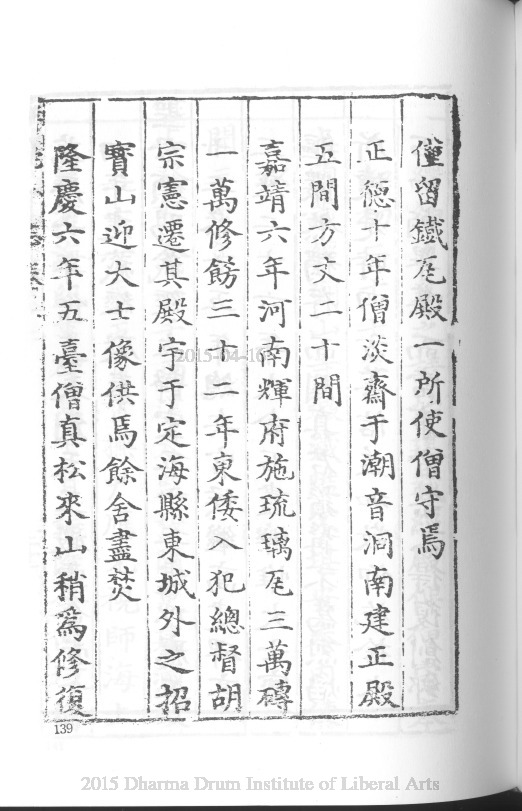 僅留鐵瓦殿一所使僧守焉
正德十年僧淡齋于潮音洞南建正殿
五間方丈二十間
嘉靖六年河南輝府施琉璃瓦三萬磚
一萬修餝三十二年東倭入犯總督胡
宗憲遷其殿宇于定海縣東城外之招
寶山迎大士像供焉餘舍盡焚
隆慶六年五臺僧真松來山稍為修復
139
2015-04-16
2015 Dharma Drum Institute of Liberal Arts